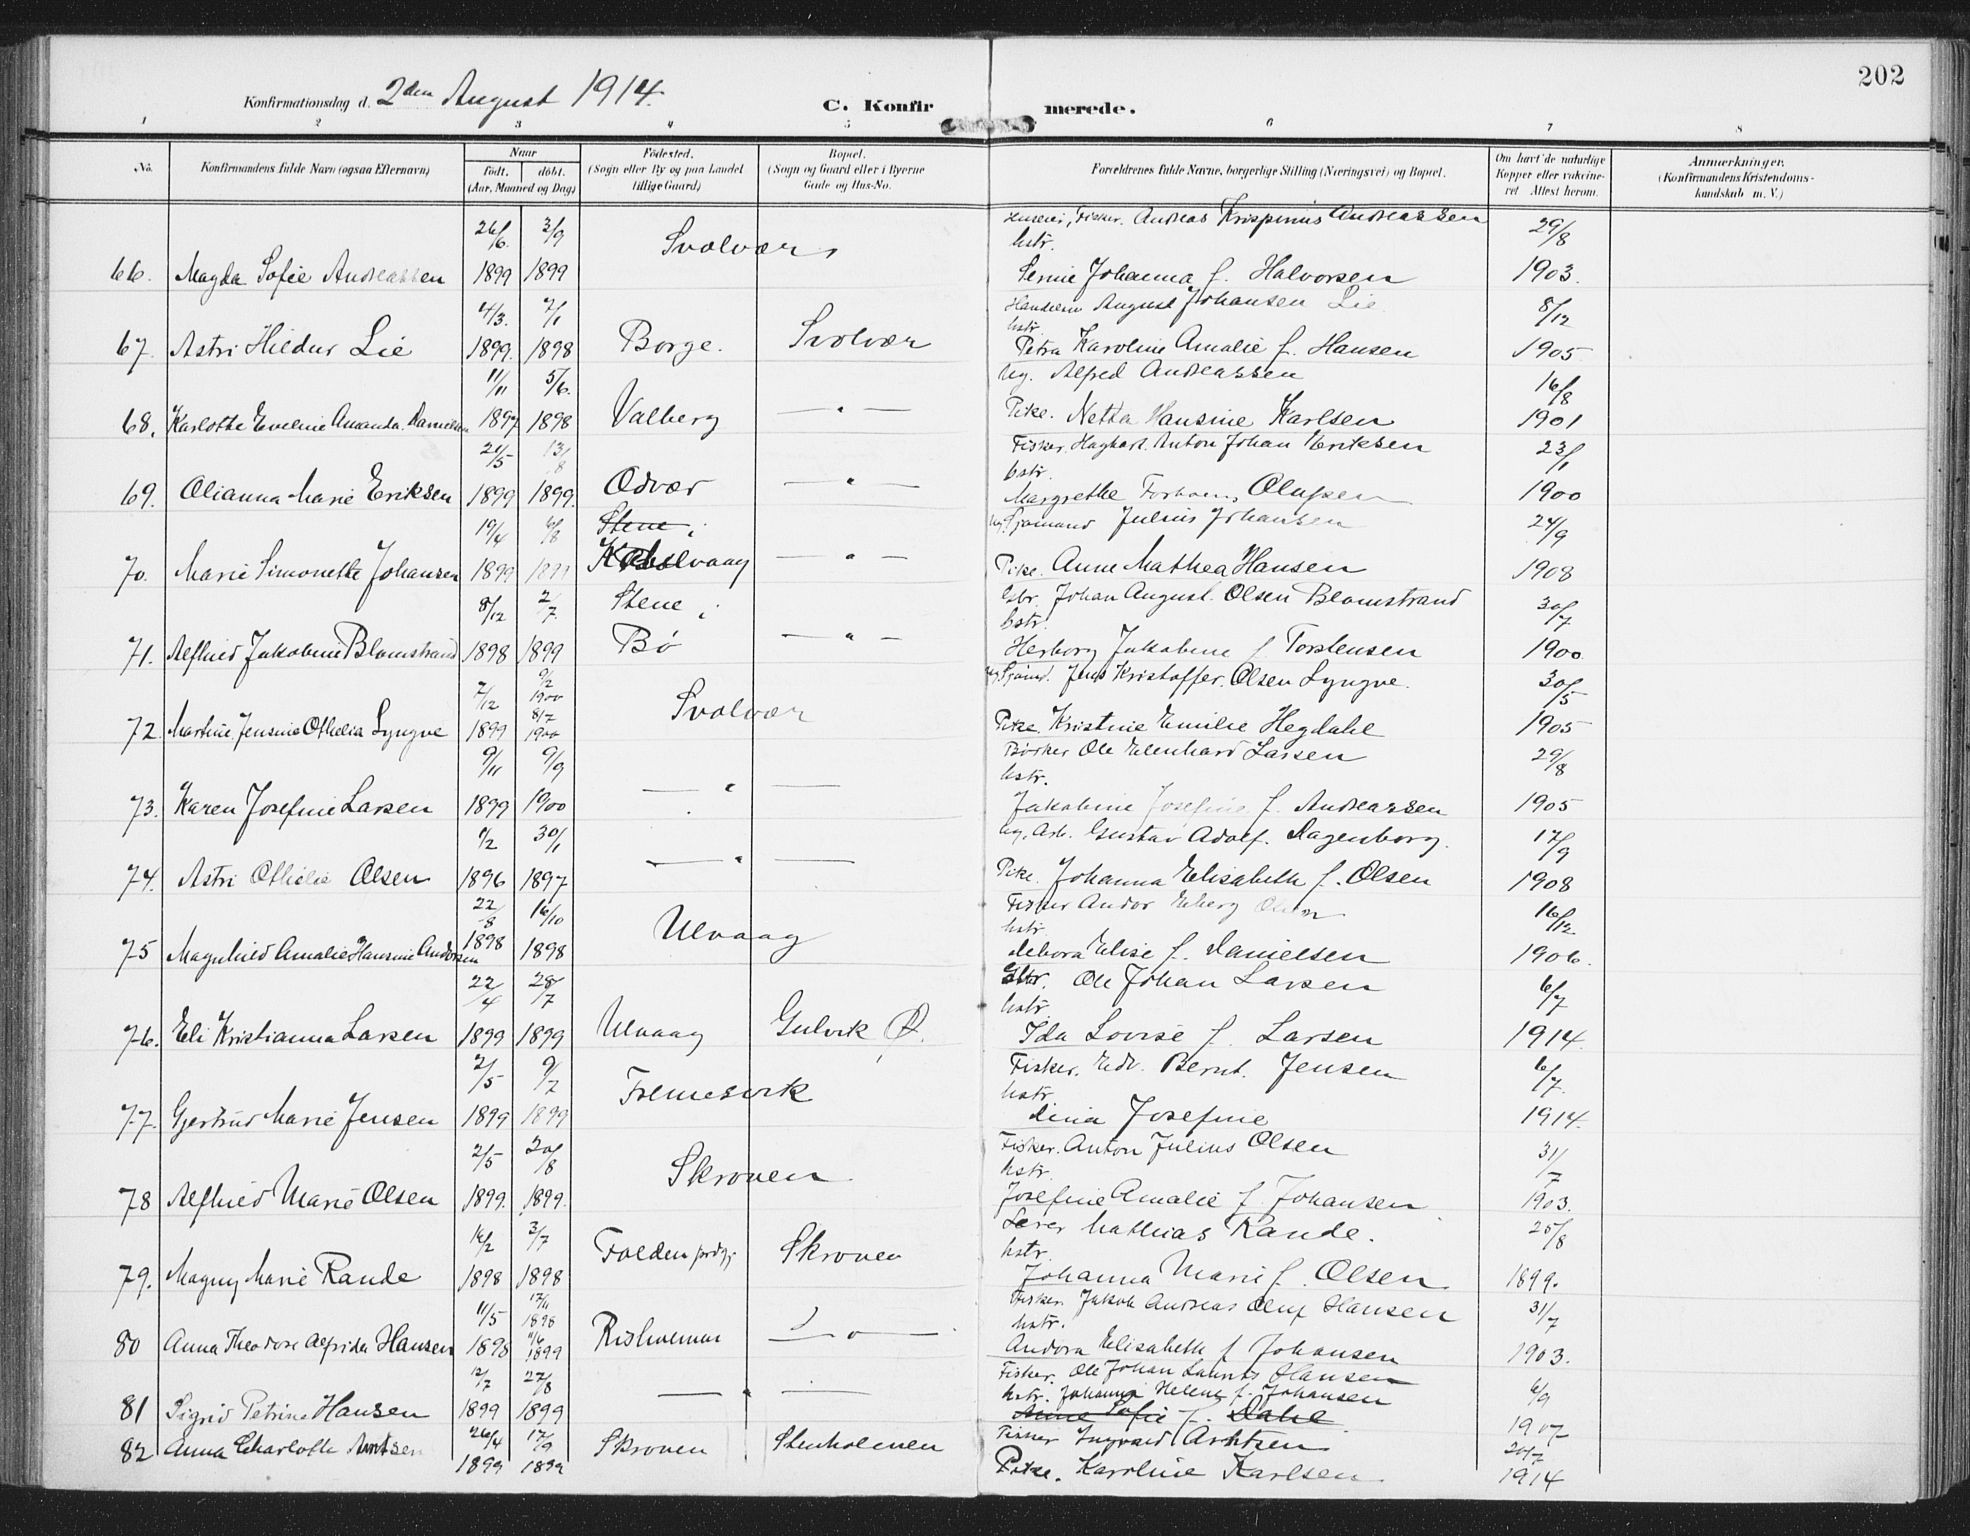 202
Konfirmationsdag d. 2den August 1914.
C. Konfirmerede.
1 2 3 4 5 6 7 8
No. Konfirmandens fulde Navn (ogsaa Efternavn) Naar født. døbt. (Aar, Maaned og Dag) Fødested. (Sogn eller By og paa Landet tillige Gaard) Bopæl. (Sogn og Gaard eller i Byerne Gade og Hus-No. Forældrenes fulde Navne, borgerlige Stilling (Næringsvei) og Bopæl. Om havt de naturlige Kopper eller vaccineret Attest herom. Anmærkninger. (Konfirmandens Kristendomskundskab m. V.)
26/6 3/9 Svolvær Fisker. Andreas Krispinus Andreassen 29/8
hstr.
66. Magda Sofie Andreassen 1899 1899 Johanna f. Halvorsen 1903.
4/3. 7/1 August Johansen Lie 8/12
hstr.
67. Astri Hildur Lie 1899. 1898 Borge. Svolvær Petra Karoline Amalie f. Hansen 1905
11/11 5/6. Ug. Alfred Andreassen 16/8
68. Karlotte Eveline Amanda Danielsen 1897 1898 Valberg — " — Pike. Netta Hansine Karlsen 1901
21/5 13/8 Fisker. Hagbart Anton Johan Eriksen 23/1
hstr.
69. Olianna Marie Eriksen 1899 1899. Odvær — " — Margrethe Olufsen 1900
19/4 6/8 Stene i ug Sjømand Julius Johansen 24/9
70. Marie Simonette Johansen 1899 1899 Kabelvaag — " — Pike. Anne Mathea Hansen 1908
8/12 2/7 Stene i Gbr. Johan August Olsen Blomstrand 30/7
hstr.
71. Alfhild Jakobine Blomstrand 1898 1899 Bø — " — Herborg Jakobine f Torstensen 1900
7/12 9/2 1900 Svolvær ug Sjømd. Jens Kristoffer Olsen Lyngve. 30/5
72. Martine Jensine Othelia Lyngve 1899 8/7 1900 Pike Kristine Emilie Hegdahl 1905
9/11 9/9 Ole Edenhard Larsen 29/8
hstr.
73. Karen Josefine Larsen 1899 1900 — " — Jakobine Josefine f. Andreassen 1905
9/2 30/1 ug. Arb. Gustav Adolf. Dagenborg. 17/9
74. Astri Othelie Olsen 1896 1897 — " — Pike. Johanna Elisabeth f. Olsen 1908
22/8 16/10 Ulvaag Fisker Andor Olsen 16/12
hstr.
75 Magnhild Amalie Hansine Andorsen 1898 1898 Debora Elise f. Danielsen 1906.
22/4 28/7 Gbr. Ole Johan Larsen 6/7
hstr.
76. Eli Kristianna Larsen 1899 1899 Ulvaag Gulvik Ø. Ida Lovise f. Larsen 1914.
2/5 9/7 Fisker. Edv. Bernt. Jensen 6/7
hstr.
77. Gjertrud Marie Jensen 1899 1899 Dina Josefine 1914.
2/5 20/8 Skroven Fisker. Anton Julius Olsen 31/7
hstr.
78 Alfhild Marie Olsen 1899. 1899. Josefine Amalie f. Johansen 1903.
16/2 3/7 Lærer Mathias Rande. 25/8
hstr.
79. Magny Marie Rande 1898 1898 Folden prdgj. Skroven Johanna Marie f. Olsen 1899.
11/5 17/11 1898 Fisker. Jakob Andreas Oluf Hansen 31/7
hstr.
80 Anna Theodore Alfrida Hansen 1898 11/6 1899 Risholmen — " — Andora Elisabeth f Johansen 1903.
12/7 27/8 Fisker. Ole Johan Laurits Hansen 6/9
hstr. Johanna Helene f. Johansen
81 Sigrid Petrine Hansen 1899 1899 — " — Anne Sofie f. Dahl 1907
26/4 17/9 Fisker Ingvald Arntsen 20/7
82 Anna Charlotte Arntsen 1899 1899 Skroven Stenholmen Pike. Karoline Karlsen 1914